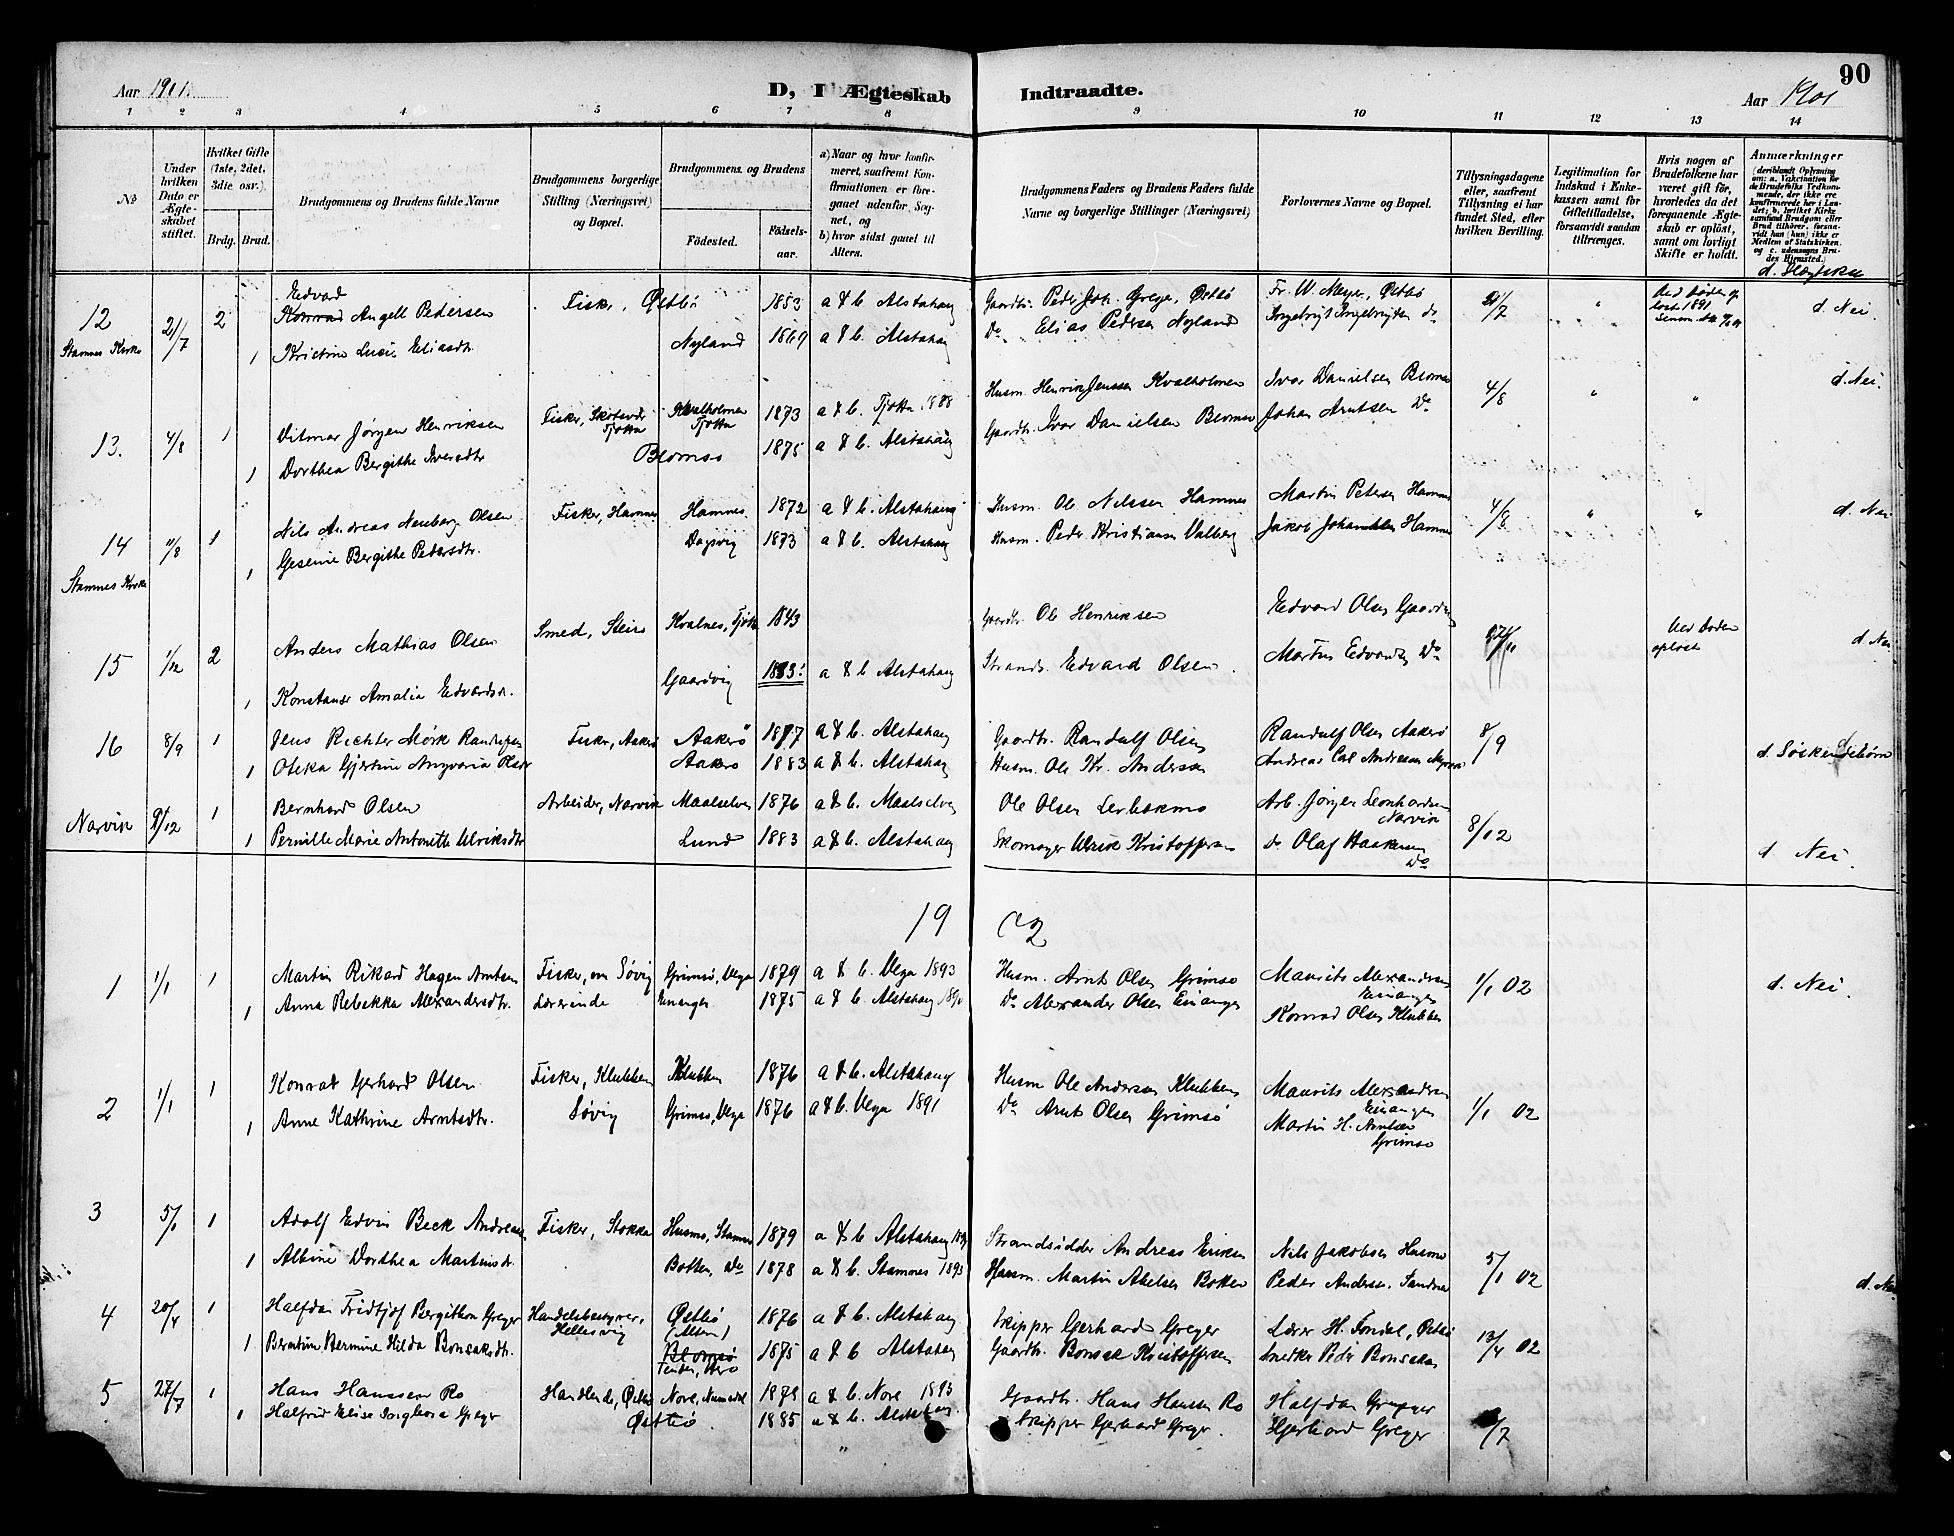 90
Aar 1901. D, I Ægteskab Indtraadte. Aar 1901
1 2 3 4 5 6 7 8 9 10 11 12 13 14
№
Under hvilken Dato er Ægteskabet stiftet.
Hvilket Gifte (1ste, 2det, 3die osv.).
Brdg. Brud.
Brudgommens og Brudens fulde Navne
Brudgommens borgerlige Stilling (Næringsvei) og Bopæl.
Brudgommens og Brudens
Fødested.
Fødselsaar.
a) Naar og hvor konfirmeret, saafremt Konfirmationen er foregaaet udenfor Sognet, og
b) hvor sidst gaaet til Alters.
Brudgommens Faders og Brudens Faders fulde Navne og borgerlige Stillinger (Næringsvei)
Forlovernes Navne og Bopæl.
Tillysningsdagene eller, saafremt Tillysning ei har fundet Sted, efter hvilken Bevilling.
Legitimation for Indskud i Enkekassen samt for Giftetilladelse, forsaavidt saadan tiltrænges.
Hvis nogen af Brudefolkene har været gift før, hvorledes da det foregaaende Ægteskab er opløst, samt om lovligt Skifte er holdt.
Anmærkninger
12 2/7 2 Edvard Angell Pedersen Fisker, Østbø 1853 a & b. Alstahaug Fr. W. Meyer, Østbø 2/7 d. Nei.
Stamnes Kirke 1 Kristine Lusie Eliasdtr. Nyland 1869 a & b. Alstahaug Do Elias Pedersen Nyland Ingebrigt Ingebrigtsen do
13. 4/8 1 Vitmar Jørgen Henriksen Fisker, Tjøtta Kvalholmen Tjøtta 1873 a & b. Tjøtta 1888 Husm. Henrik Jenssen Kvalholmen Ivar Danielsen Blomsø 4/8 d. Nei.
1 Dorthea Bergithe Iversdtr Blomsø 1875 a & b. Alstahaug Gaardbr. Ivar Danielsen Blomsø Johan Arntsen Do
14 11/8 1 Nils Andreas Neuberg Olsen Fisker, Hamnes Hamnes 1872 a & b. Alstahaug Husm. Ole Nilssen Hamnes Martin Petersen Hamnes 4/8 d. Nei
Stamnes Kirke 1 Gesine Bergithe Pedersdtr. Dagsvig 1873 a & b. Alstahaug Husm. Peder Kristiansen Valberg Jakob Johansen Hamnes
15 1/12 2 Anders Mathias Olsen Smed, Steiro Kvalnes, Tjøtta 1843 Gaardbr. Ole Henriksen Edvard Olsen Gaardvig 27/11 Ved Døden opløst d. Nei
1 Konstanse Amalia Edvardsdr. Gaardvig a & b. Alstahaug Strands. Edvard Olsen Martin Edvards Do
16 8/9 1 Jens Richter Mørk Randulfsen Fisker, Aakerø Aakerø 1877 a & b. Alstahaug Gaardbr. Randulf Olsen Randulf Olsen Aakerø 8/9 d Søskendebørn
1 Oleka Gjertine Aakerø 1883 a & b. Alstahaug Husm. Ole Kr. Andersen Andreas Carl Andreasen
Narvik 9/12 1 Bernhard Olsen Arbeider, Narvik Maalselven 1876 a & b. Maalselven Ole Olsen Arb. Jørgen Leonhardsen Narvik 8/12
1 Pernille Marie Antonette Ulriksdtr Lund 1883 a & b. Alstahaug Skomager Ulrik Kristoffersen do Olaf Haakensen Do d Nei.
19 02
1 1/1 1 Martin Rikard Hagen Arntsen Fisker, Søvig Grimsø, Vega 1879 a & b. Vega 1893 Husm. Arnt Olsen Grimsø Maurits Alexandersen Einangen 1/1 02 d. Nei.
1 Anna Rebekka Alexandersdtr. Lærerinde Einangen 1875 a & b. Alstahaug Do Alexander Olsen Einangen Konrad Olsen Klubben
2 1/1 1 Konrad Gerhard Olsen Fisker, Klubben Klubben 1876 a & b. Alstahaug Husm Ole Andersen Klubben Maurits Alexandersen Einangen 1/1 02
1 Anne Kathrine Arntsdtr. Søvig Grimsø, Vega 1876 a & b. Vega 1891 Do Arnt Olsen Grimsø Martin H. Arntsen Grimsø
3 5/1 1 Adolf Edvin Beck Andreasen Fisker, Stokka Husmo, Stamnes 1879 a & b Alstahaug Strandsidder Andreas Eriksen Nils Jakobsen Husmo 5/1 02
1 Albine Dorthea Martinsdr. Botten, do 1878 a & b. Stamnes 1893 Husm. Martin Akelsen Botten Peder Andersen Sandnes d. Nei
4 20/4 1 Halfdan Fridtjof Bergithon Greger Handelsbestyrer, Hellesvig Østbø (Alsten) 1876 a & b. Alstahaug Skipper Gerhard Greger Lærer H. Fondal, Østbø 13/4 02
1 Berntine Hermine Hilda Bonsaksdtr. Blomsø 1875 a & b Alstahaug Gaardbr. Bonsak Kristoffersen Snedker Peder Bonsaksen
5 27/7 1 Hans Hanssen Ro Handlende, Østbø Nore, Numedal a & b. Nore 1893 Gaardbr. Hans Hanssen Ro Halfdan Greger /7
1 Halfrid Elise Ingeborg Greger Østbø 1885 a & b. Alstahaug. Skipper Gerhard Greger. Gerhard Greger